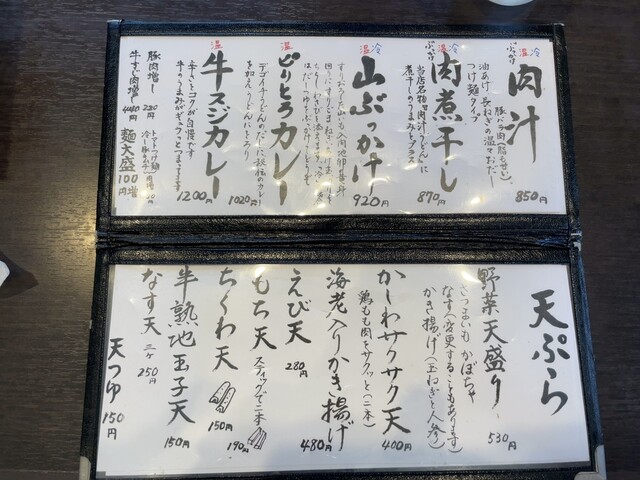 温冷
ぶっかけ
肉汁
豚バラ肉(脂も甘い)、
油あげ、長ねぎの温々おだし
つけ麺タイプ
850円
温冷
ぶっかけ
肉煮干し
当店名物「肉汁うどん」に
煮干しのうまみをプラス
870円
温冷
山ぶっかけ
920円
温
どりとろカレー
を加えうどんにとろり
1020円
温
牛スジカレー
辛さとコクが自慢です
牛のうまみがギュッとつまってます
1200円
豚肉増し 220円
牛すじ肉増 440円
麺大盛 100円増
天ぷら
野菜天盛り
さつまいも かぼちゃ
なす(変更することもあります)
かき揚げ(玉ねぎと人参)
530円
かしわサクサク天
鶏もも肉をサクッと(二本)
400円
海老入りかき揚げ
480円
えび天
280円
もち天
スティックで二本
190円
ちくわ天
150円
半熟地玉子天
150円
なす天 三ヶ 250円
天つゆ 150円